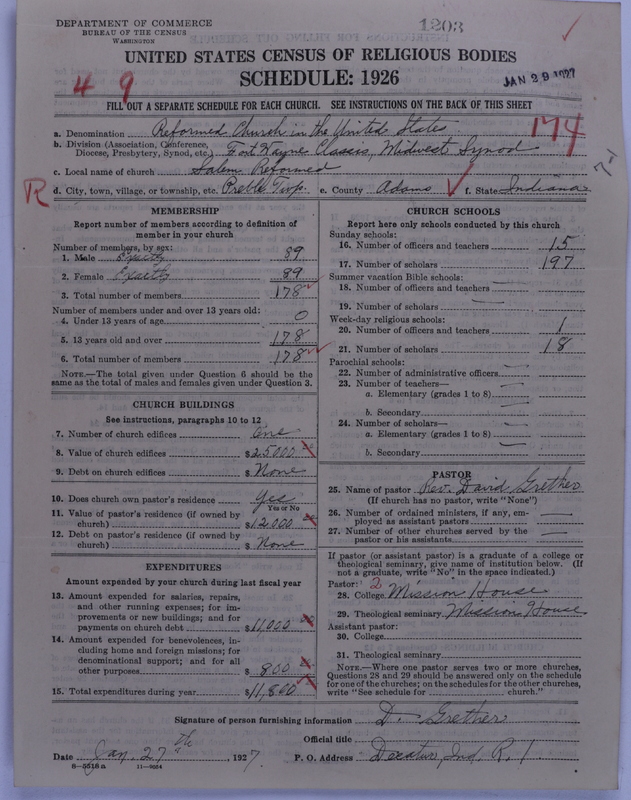 DEPARTMENT OF COMMERCE
BUREAU OF THE CENSUS
WASHINGTON
1203
UNITED STATES CENSUS OF RELIGIOUS BODIES
SCHEDULE: 1926
JAN 29 1927
4 9
FILL OUT A SEPARATE SCHEDULE FOR EACH CHURCH. SEE INSTRUCTIONS ON THE BACK OF THIS SHEET
174
7-1
R
a. Denomination Reformed Church in the United States
b. Division (Association, Conference,
Diocese, Presbytery, Synod, etc.) Fort Wayne Classis, Midwest Synod
c. Local name of church Salem Reformed
d. City, town, village, or township, etc. Preble Twp. e. County Adams f. State Indiana
MEMBERSHIP
Report number of members according to definition of
member in your church
Number of members, by sex:
1. Male Exactly 89
2. Female Exactly 89
3. Total number of members 178
Number of members under and over 13 years old:
4. Under 13 years of age 0
5. 13 years old and over 178
6. Total number of members 178
NOTE.—The total given under Question 6 should be the
same as the total of males and females given under Question 3.
CHURCH BUILDINGS
See instructions, paragraphs 10 to 12
7. Number of church edifices One
8. Value of church edifices $25000
9. Debt on church edifices $ None
10. Does church own pastor's residence Yes
Yes or No
11. Value of pastor's residence (if owned by
church) $12000
12. Debt on pastor's residence (if owned by
church) $ None
EXPENDITURES
Amount expended by your church during last fiscal year
13. Amount expended for salaries, repairs,
and other running expenses; for im-
provements or new buildings; and for
payments on church debt $11,000
14. Amount expended for benevolences, in-
cluding home and foreign missions; for
denominational support; and for all
other purposes $ 800
15. Total expenditures during year $11,800
CHURCH SCHOOLS
Report here only schools conducted by this church
Sunday schools:
16. Number of officers and teachers 15
17. Number of scholars 197
Summer vacation Bible schools:
18. Number of officers and teachers —
19. Number of scholars —
Week-day religious schools:
20. Number of officers and teachers 1
21. Number of scholars 18
Parochial schools:
22. Number of administrative officers —
23. Number of teachers—
a. Elementary (grades 1 to 8) —
b. Secondary —
24. Number of scholars—
a. Elementary (grades 1 to 8) —
b. Secondary —
PASTOR
25. Name of pastor Rev. David Grether
(If church has no pastor, write "None")
26. Number of ordained ministers, if any, em-
ployed as assistant pastors —
27. Number of other churches served by the
pastor or his assistants —
If pastor (or assistant pastor) is a graduate of a college or
theological seminary, give name of institution below. (If
not a graduate, write "No" in the space indicated.)
Pastor: 2
28. College Mission House
29. Theological seminary Mission House
Assistant pastor:
30. College
31. Theological seminary
NOTE.—Where one pastor serves two or more churches,
Questions 28 and 29 should be answered only on the schedule
for one of the churches; on the schedules for the other churches,
write "See schedule for church."
Signature of person furnishing information D. Grether
Official title
Date Jan. 27th, 1927. P. O. Address Decatur, Ind. R. 1
8—5518a 11—9054